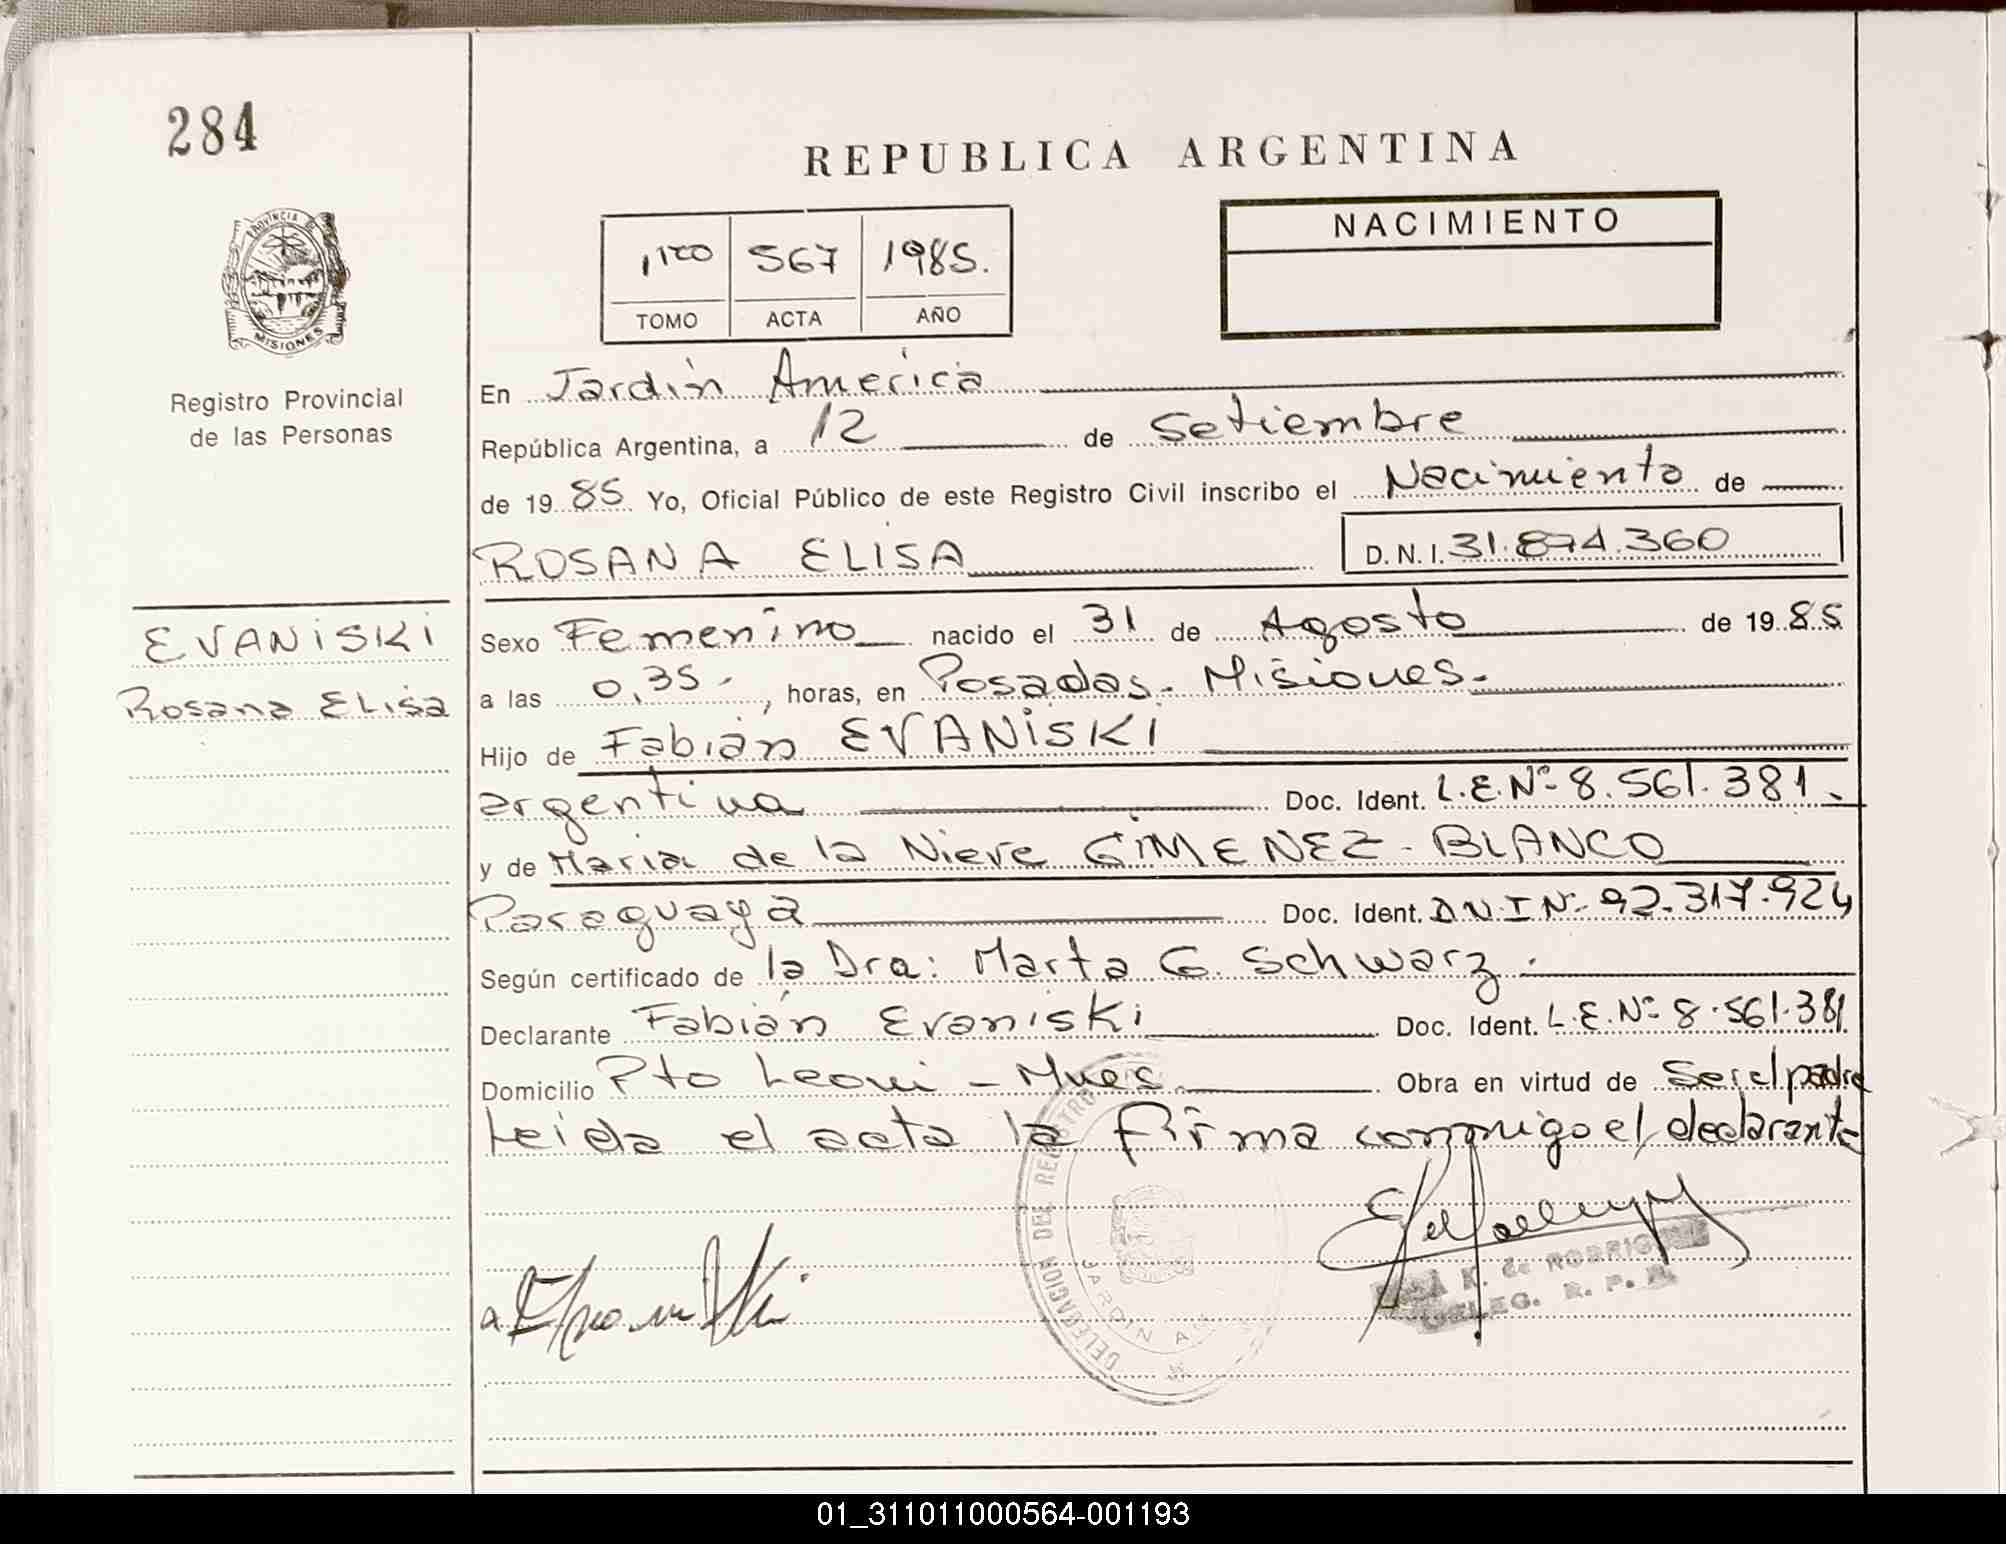 284
REPUBLICA ARGENTINA
PROVINCIA DE
MISIONES
Registro Provincial
de las Personas
1ro 567 1985.
TOMO ACTA AÑO
NACIMIENTO
En Jardín América
República Argentina, a 12 de Setiembre
de 1985 Yo, Oficial Público de este Registro Civil inscribo el Nacimiento de
ROSANA ELISA D.N.I. 31.874.360
EVANISKI
Rosana Elisa
Sexo Femenino nacido el 31 de Agosto de 1985
a las 0,35., horas, en Posadas. Misiones.
Hijo de Fabián EVANISKI
argentina Doc. Ident. L.E.Nº 8.561.381.
y de Maria de la Nieve GIMENEZ - BLANCO
Paraguaya Doc. Ident. D.N.I Nº 92.317.924
Según certificado de la Dra: Marta G. Schwarz.
Declarante Fabián Evaniski Doc. Ident. L.E.Nº 8.561.381
Domicilio Pto Leoni - Mnes Obra en virtud de Ser el padre
Leida el acta la firma conmigo el declarante
DELEGACION DEL REGISTRO
JARDIN AM
K. de RODRIGUEZ
DELEG. R. P.
01_311011000564-001193